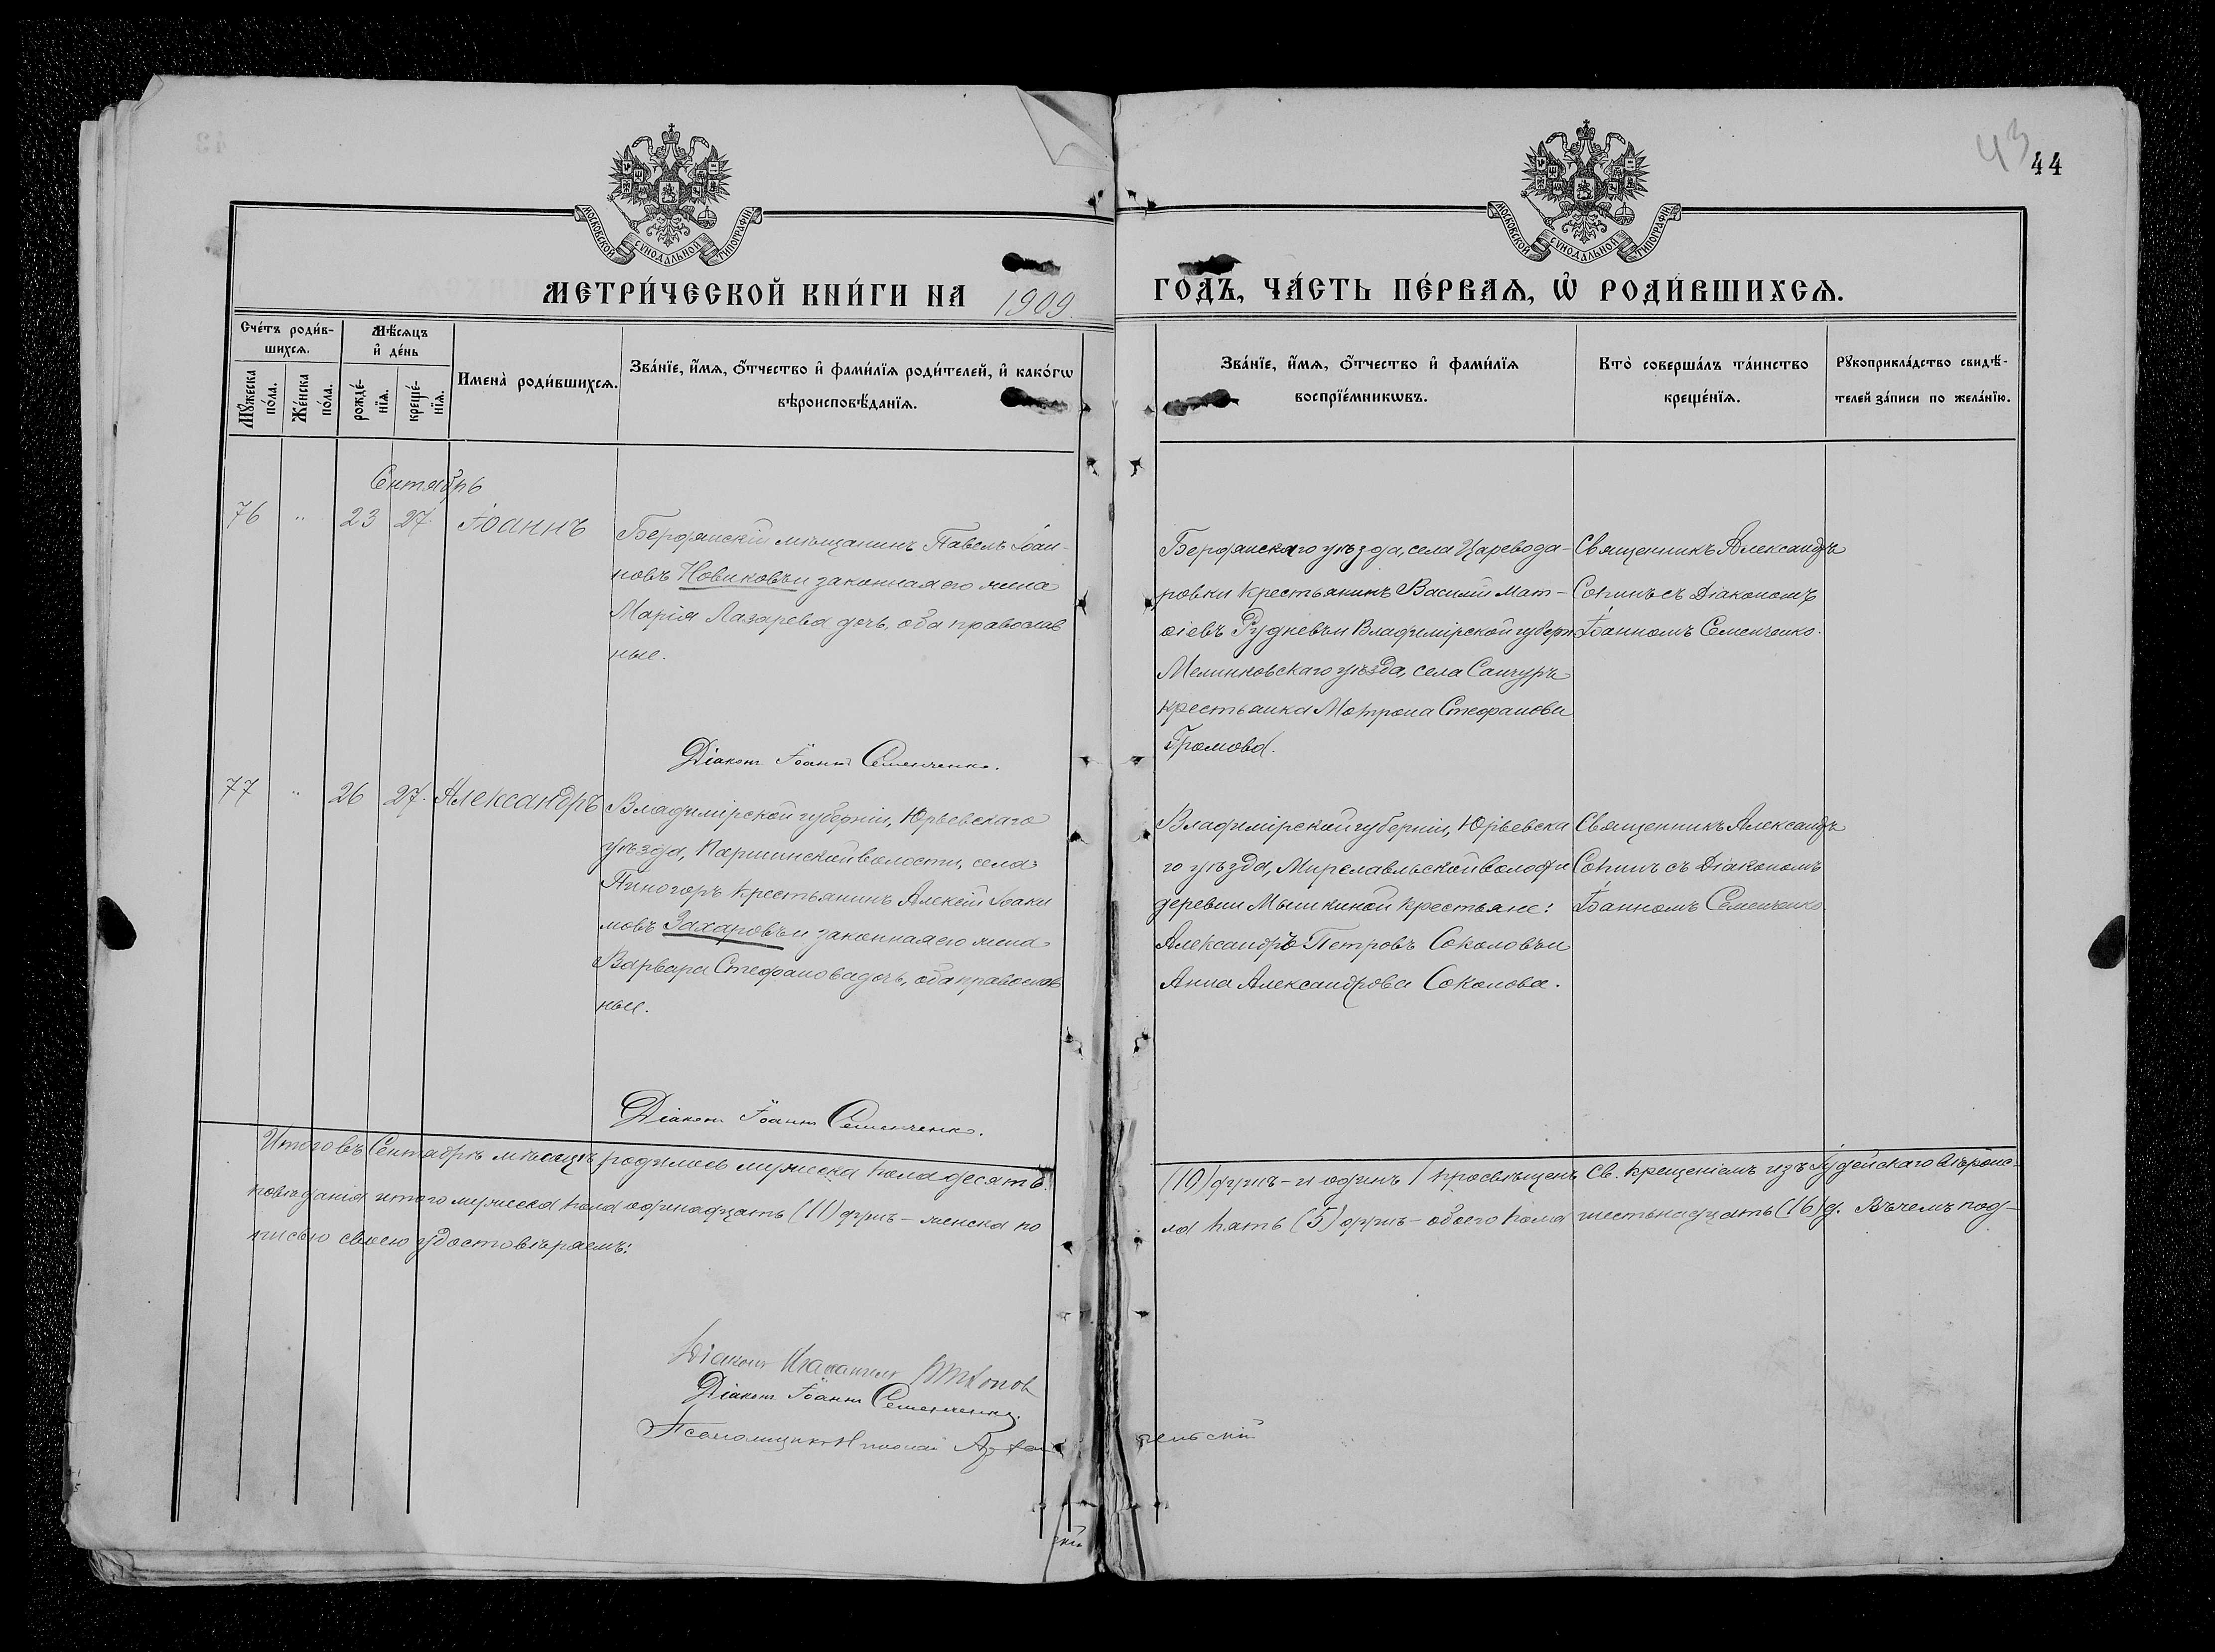 43
44
МОСКОВСКОЙ СѴНОДАЛЬНОЙ ТИПОГРАФІИ
МОСКОВСКОЙ СѴНОДАЛЬНОЙ ТИПОГРАФІИ
МЕТРИ́ЧЕСКОЙ КНИ́ГИ НА 1909. ГОДЪ, ЧА́СТЬ ПЕ́РВАѦ, Ѡ҆ РОДИ́ВШИХСѦ.
Счéтъ роди́в-
шихсѧ.
Мꙋ́жеска
по́ла.
Же́нска
по́ла.
Мѣ́сѧцъ
и҆ де́нь
рожде́-
нїѧ.
креще́-
нїѧ.
Имена̀ роди́вшихсѧ.
Зва́нїе, и҆́мѧ, ѻ҆́тчество и҆ фами́лїѧ роди́телей, и҆ како́гѡ
вѣроисповѣ́данїѧ.
Зва́нїе, и҆́мѧ, ѻ҆́тчество и҆ фами́лїѧ
воспрїе́мникѡвъ.
Кто̀ соверша́лъ та́инство
креще́нїѧ.
Рꙋкоприкла́дство свидѣ́-
телей за́писи по жела́нїю.
Сентябрь
76 " 23 27. Іоаннъ
Бердянскій мѣщанинъ Павелъ Іоан-
новъ Новиковъ и законная его жена
Марія Лазарева дочь, оба православ
ные.
Діаконъ Іоаннъ Семенченко.
Бердянскаго уѣзда, села Цареведа-
ровки крестьянинъ Василій Мат-
ѳіевъ Рудневъ и Владимірской губерн
Меленковскаго уѣзда, села Санчуръ
крестьянка Мотрона Стефанова
Громова.
Священникъ Александръ
Сопинъ съ Діакономъ
Іоанномъ Семенченко.
77 " 26 27. Александръ
Владимірской губерніи, Юрьевскаго
уѣзда, Паршинской волости, села
Пиногоръ крестьянинъ Алексѣй Іоаки
мовъ Захаровъ и законная его жена
Варвара Стефанова дочь, оба православ
ные.
Діаконъ Іоаннъ Семенченко.
Владимірской губерніи, Юрьевска
го уѣзда, Мирславльской волости
деревни Мышкиной крестьяне:
Александръ Петровъ Соколовъ и
Анна Александрова Соколова.
Священникъ Александръ
Сопинъ съ Діакономъ
Іоанномъ Семенченко.
Итого въ Сентябрѣ мѣсяцѣ родилось мужеска пола десять (10) душъ - и одинъ 1 просвѣщенъ Св. Крещеніемъ изъ Іудейскаго вѣроис-
повѣданія итого мужеска пола одинадцать (11) душъ - женска по ла пять (5) душъ - обоего пола шестьнадцать (16) д. Въ чемъ под-
писью своею удостовѣряемъ:
Діаконъ
Діаконъ Іоаннъ Семенченко.
Псаломщикъ Николай